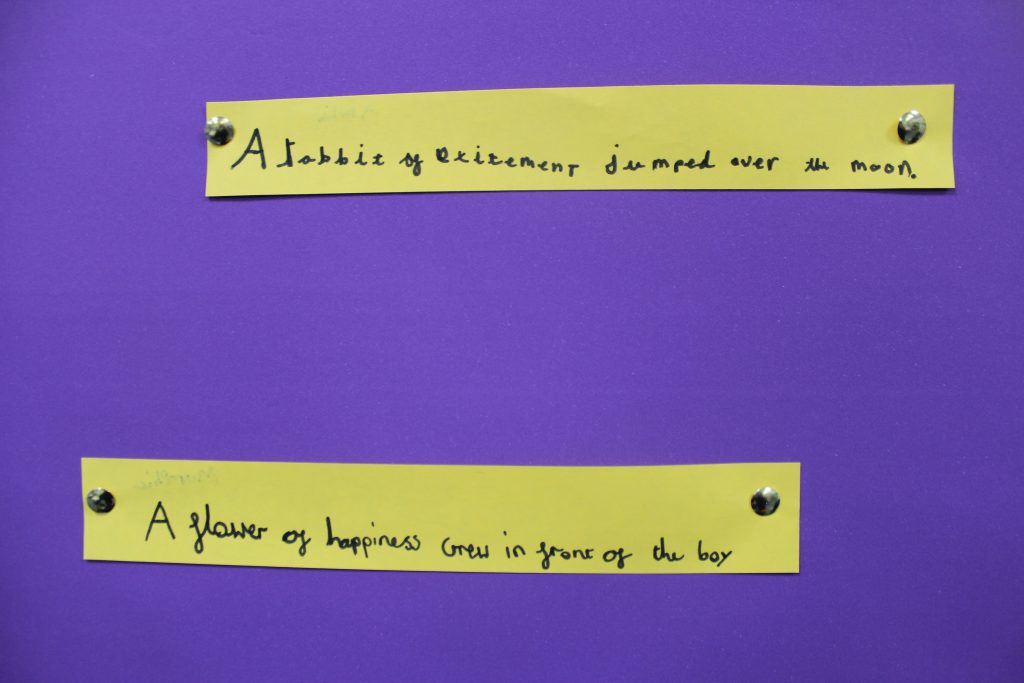 A rabbit of exitement jumped over the moon.
A flower of happiness Grew in front of the boy